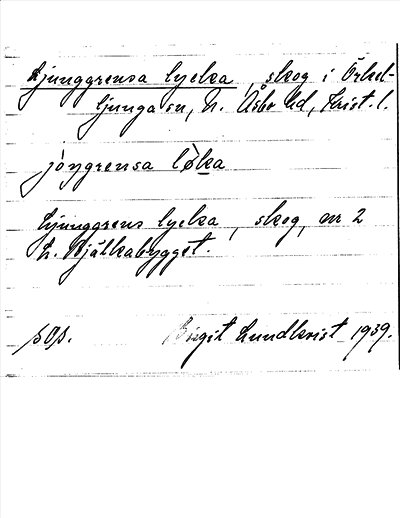 Ljunggrensa lycka, skog i Örkel-
ljunga sn, N. Åsbo hd, Krist. l.
jòŋgrensa lø̀ka
Ljunggrens lycka, skog, nr 2
L. Bjälkabygget.
sOp.
Birgit Lundkvist 1939.